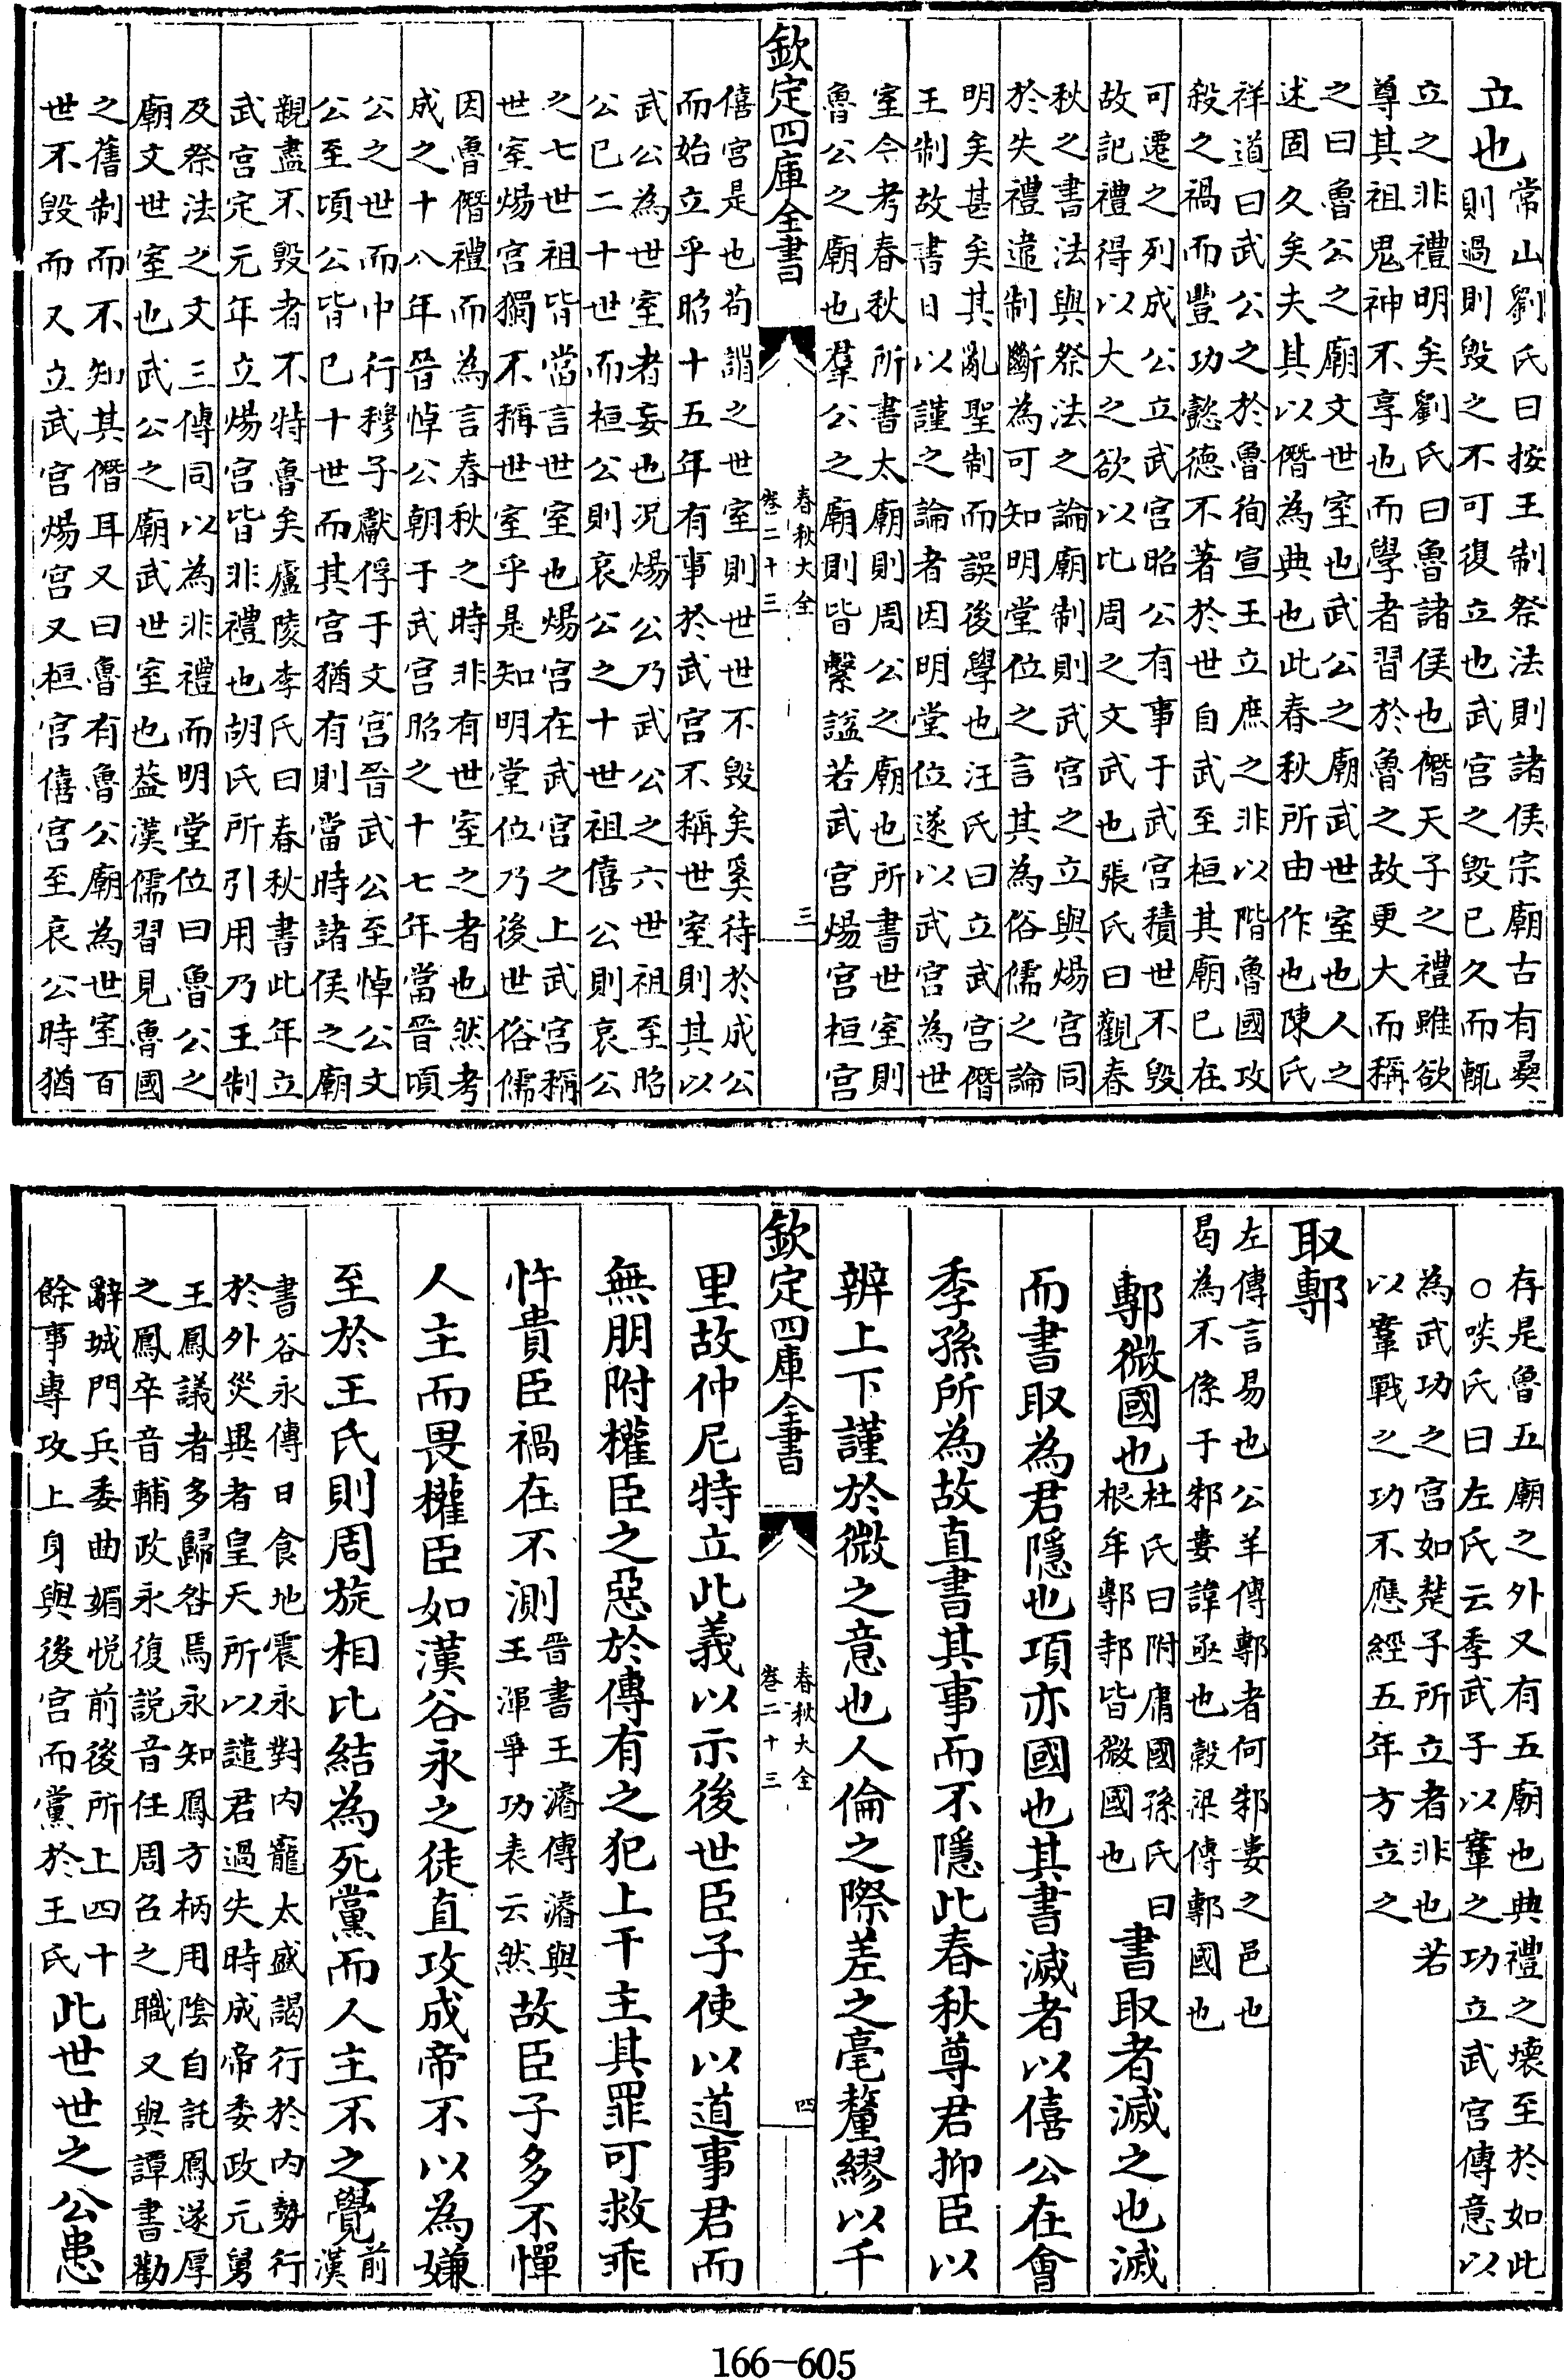 立也常山劉氏曰按王制祭法則諸侯宗廟古有彛
則過則毀之不可復立也武宫之毀已久而輒
立之非禮明矣劉氏曰魯諸侯也僭天子之禮雖欲
尊其祖鬼神不享也而學者習於魯之故更大而稱
之曰魯公之廟文世室也武公之廟武世室也人之
述固久矣夫其以僭為典也此春秋所由作也陳氏
祥道曰武公之於魯徇宣王立庶之非以階魯國攻
殺之禍而豐功懿德不著於世自武至桓其廟已在
可遷之列成公立武宫昭公有事于武宫積世不毀
故記禮得以大之欲以比周之文武也張氏曰觀春
秋之書法與祭法之論廟制則武宫之立與煬宫同
於失禮違制斷為可知明堂位之言其為俗儒之論
明矣甚矣其亂聖制而誤後學也汪氏曰立武宫僭
王制故書日以謹之論者因明堂位遂以武宫為世
室今考春秋所書太廟則周公之廟也所書世室則
魯公之廟也羣公之廟則皆繫謚若武宫煬宫桓宫
欽定四庫全書
春秋大全
卷二十三
三
僖宫是也苟謂之世室則世世不毀矣奚待於成公
而始立乎昭十五年有事於武宫不稱世室則其以
武公為世室者妄也况煬公乃武公之六世祖至昭
公已二十世而桓公則哀公之十世祖僖公則哀公
之七世祖皆當言世室也煬宫在武宫之上武宫稱
世室煬宫獨不稱世室乎是知明堂位乃後世俗儒
因魯僭禮而為言春秋之時非有世室之者也然考
成之十八年晉悼公朝于武宫昭之十七年當晉頃
公之世而中行穆子獻俘于文宫晉武公至悼公文
公至頃公皆已十世而其宫猶有則當時諸侯之廟
親盡不毀者不特魯矣廬陵李氏曰春秋書此年立
武宫定元年立煬宫皆非禮也胡氏所引用乃王制
及祭法之文三傳同以為非禮而明堂位曰魯公之
廟文世室也武公之廟武世室也葢漢儒習見魯國
之舊制而不知其僭耳又曰魯有魯公廟為世室百
世不毀而又立武宫煬宫又桓宫僖宫至哀公時猶
存是魯五廟之外又有五廟也典禮之壞至於如此
○啖氏曰左氏云季武子以鞌之功立武宫傳意以
為武功之宫如楚子所立者非也若
以鞌戰之功不應經五年方立之
取鄟
左傳言易也公羊傳鄟者何邾婁之邑也
曷為不係于邾婁諱亟也穀梁傳鄟國也
鄟微國也杜氏曰附庸國孫氏曰
根牟鄟邿皆微國也書取者滅之也滅
而書取為君隱也項亦國也其書滅者以僖公在會
季孫所為故直書其事而不隱此春秋尊君抑臣以
辨上下謹於微之意也人倫之際差之毫釐繆以千
欽定四庫全書
春秋大全
卷二十三
四
里故仲尼特立此義以示後世臣子使以道事君而
無朋附權臣之惡於傳有之犯上干主其罪可救乖
忤貴臣禍在不測晉書王濬傳濬與
王渾爭功表云然故臣子多不憚
人主而畏權臣如漢谷永之徒直攻成帝不以為嫌
至於王氏則周旋相比結為死黨而人主不之覺前
漢
書谷永傳日食地震永對内寵太盛謁行於内勢行
於外災異者皇天所以譴君過失時成帝委政元舅
王鳳議者多歸咎焉永知鳳方柄用陰自託鳳遂厚
之鳳卒音輔政永復説音任周召之職又與譚書勸
辭城門兵委曲媚悦前後所上四十
餘事專攻上身與後宫而黨於王氏此世世之公患
166—605